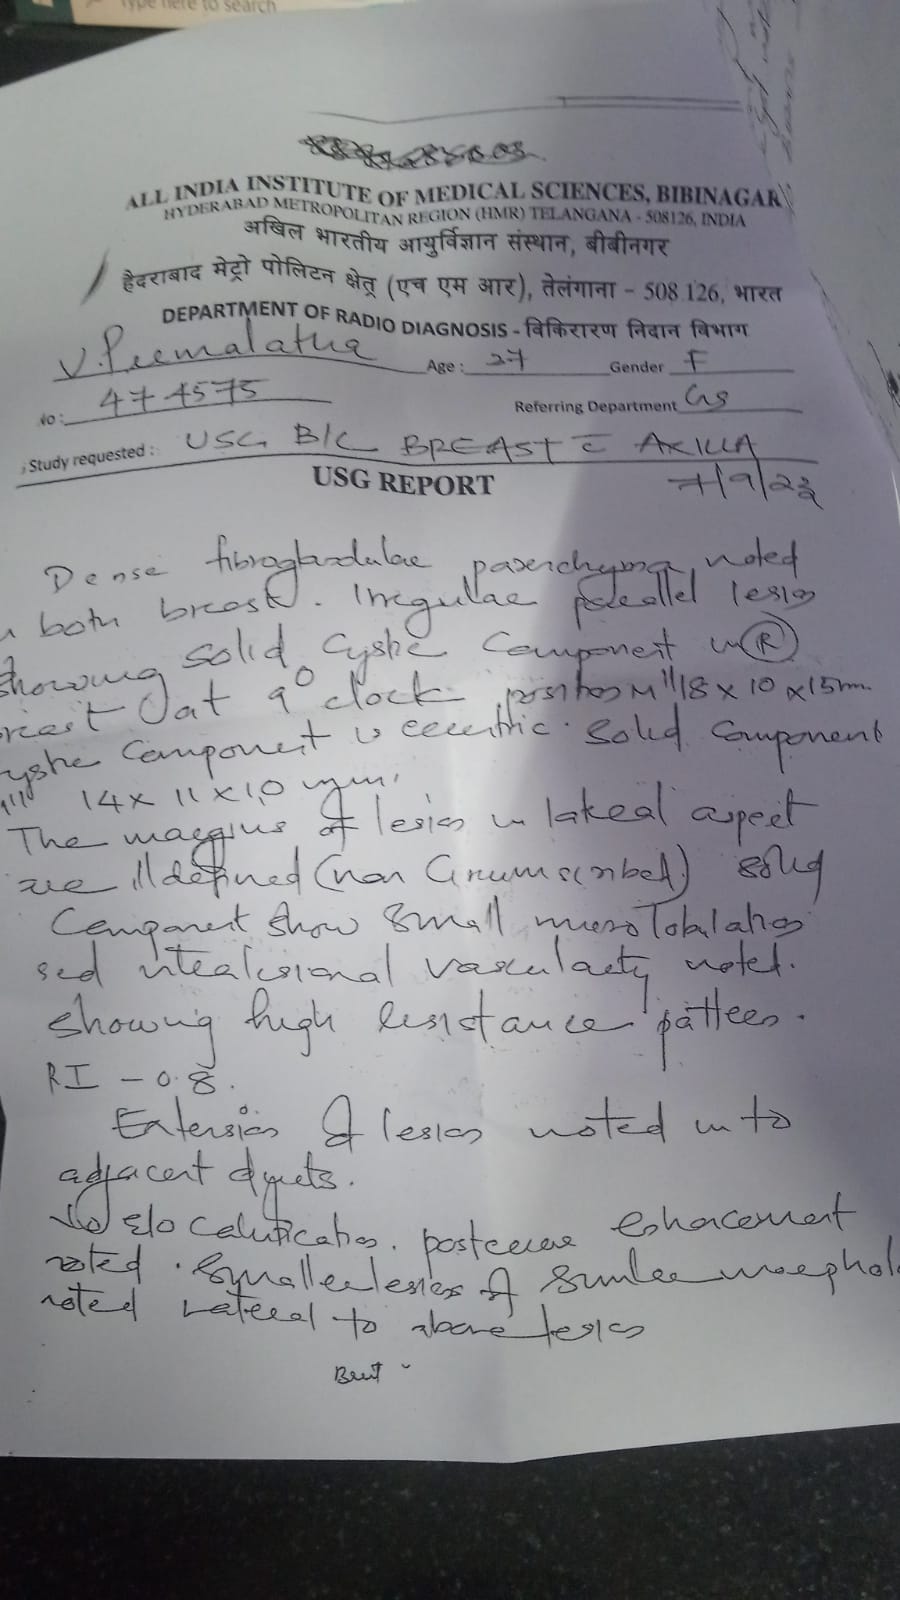 Type here to search
ALL INDIA INSTITUTE OF MEDICAL SCIENCES, BIBINAGAR
HYDERABAD METROPOLITAN REGION (HMR) TELANGANA - 508126, INDIA
अखिल भारतीय आयुर्विज्ञान संस्थान, बीबीनगर
हैदराबाद मेट्रो पोलिटन क्षेत्र (एच एम आर), तेलंगाना - 508 126, भारत
DEPARTMENT OF RADIO DIAGNOSIS - विकिरारण निदान विभाग
V. Premalatha Age : 37 Gender F
No: 474575 Referring Department GS
Study requested : USG B/L BREAST c̄ AXILLA
USG REPORT 7/9/23
Dense fibroglandular parenchyma noted
both breast. Irregular parallel lesion
showing solid cystic component in (R)
breast at 9° clock position M" 18 x 10 x 15mm.
cystic component is eccentric. Solid component
14 x 11 x 10 mm.
The margins of lesion in lateral aspect
are illdefined (non circumscribed) solid
component show small microlobulations
intralesional vascularity noted.
showing high resistance pattern.
RI - 0.8.
Extension of lesion noted into
adjacent ducts.
No E/o calcification. posterior enhancement
noted. Smaller lesion of similar morphol
noted lateral to above lesion